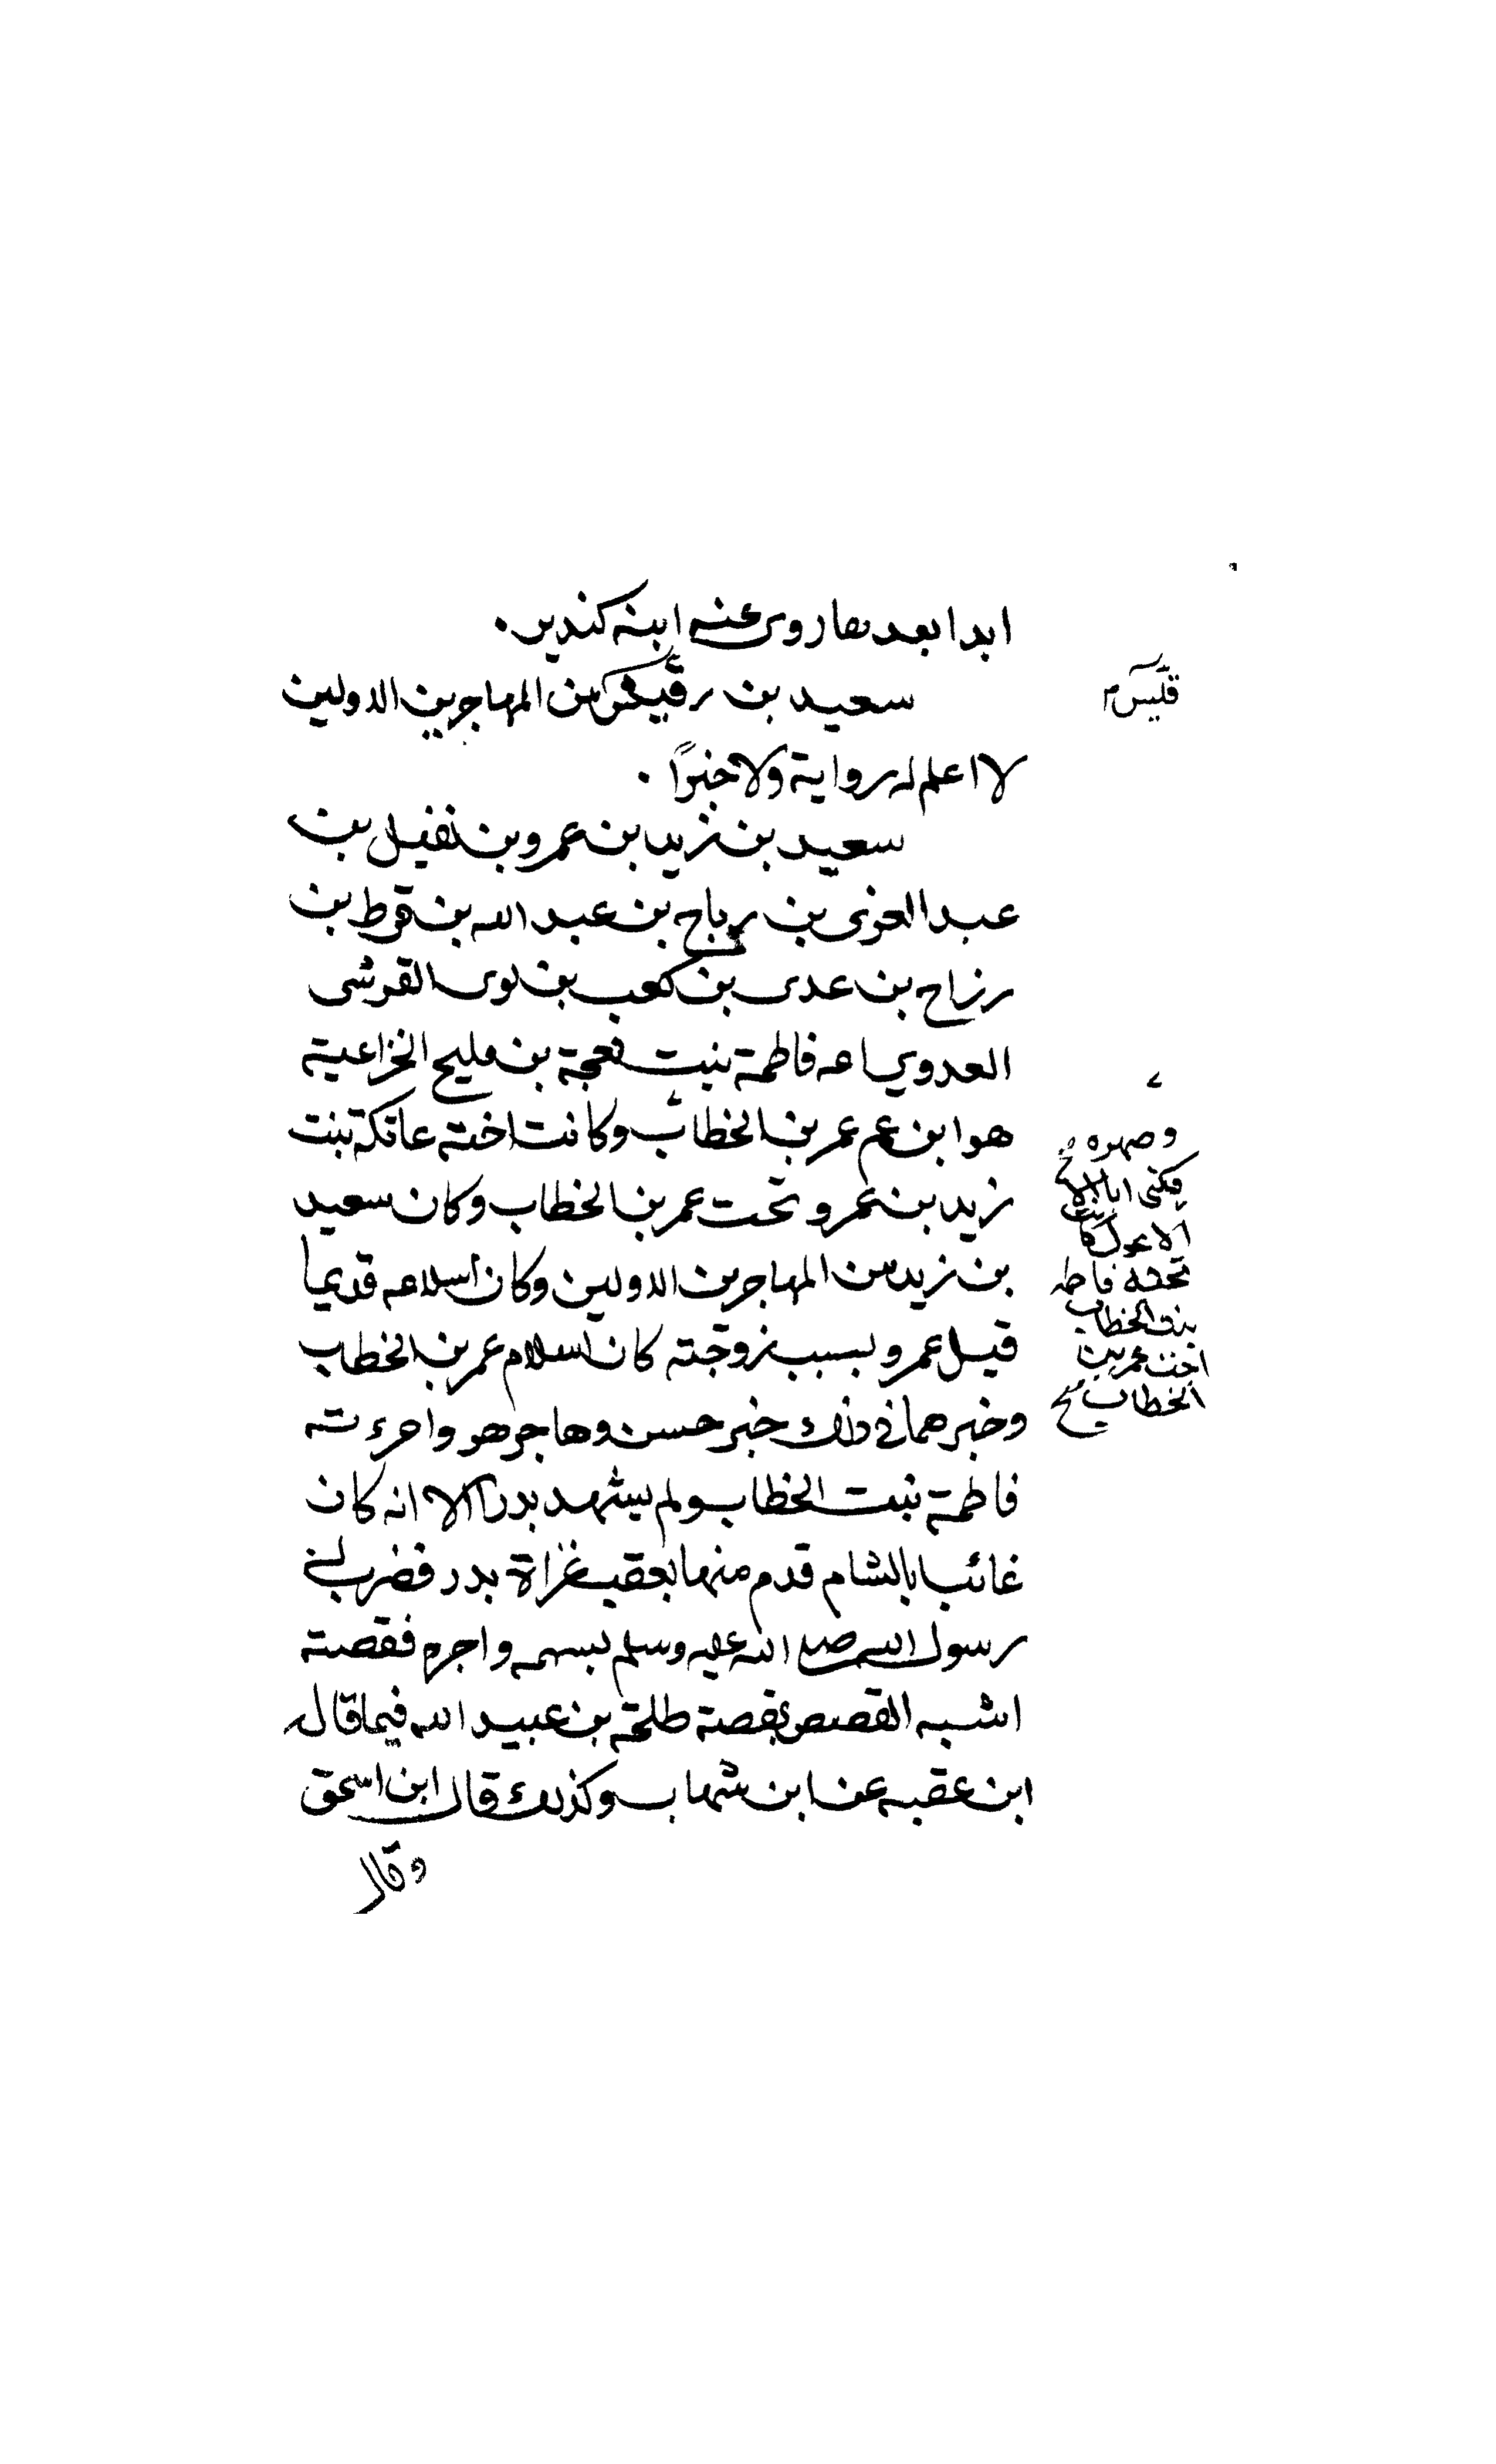 ابدا بعدها روى عنه ابنه كندير .
سعيد بن رقيش من المهاجرين الاولين
لا اعلم له رواية ولا خبرًا .
سعيد بن زيد بن عمرو بن نفيل بن
عبد العزى بن رباح بن عبد الله بن قرط بن
رزاح بن عدى بن كعب بن لوى القرشى
العدوي امه فاطمة بنت نعجة بن مليح الخزاعية
هو ابن عم عمر بن الخطاب وكانت اخته عاتكة بنت
زيد بن عمرو تحت عمر بن الخطاب وكان سعيد
بن زيد من المهاجرين الاولين وكان اسلامه قديما
قبل عمر و بسبب زوجته كان اسلام عمر بن الخطاب
وخبرهما فى ذلك خبر حسن وهاجر هو وامرءته
فاطمة بنت الخطاب ولم يشهد بدرا لانه كان
غائبا بالشام قدم منها بعقب غزاة بدر فضرب له
رسول الله صلى الله عليه وسلم بسهمه واجره فقصته
اشبه القصص بقصة طلحة بن عبيد الله فيما قال
ابن عقبه عن ابن شهاب وكذلك قال ابن اسحق
وقال
قيس م
وصهره
يكنى ابا
الاعور كانت
تحته فاطمه
بنت الخطاب
اخت عمر بن
الخطاب صح